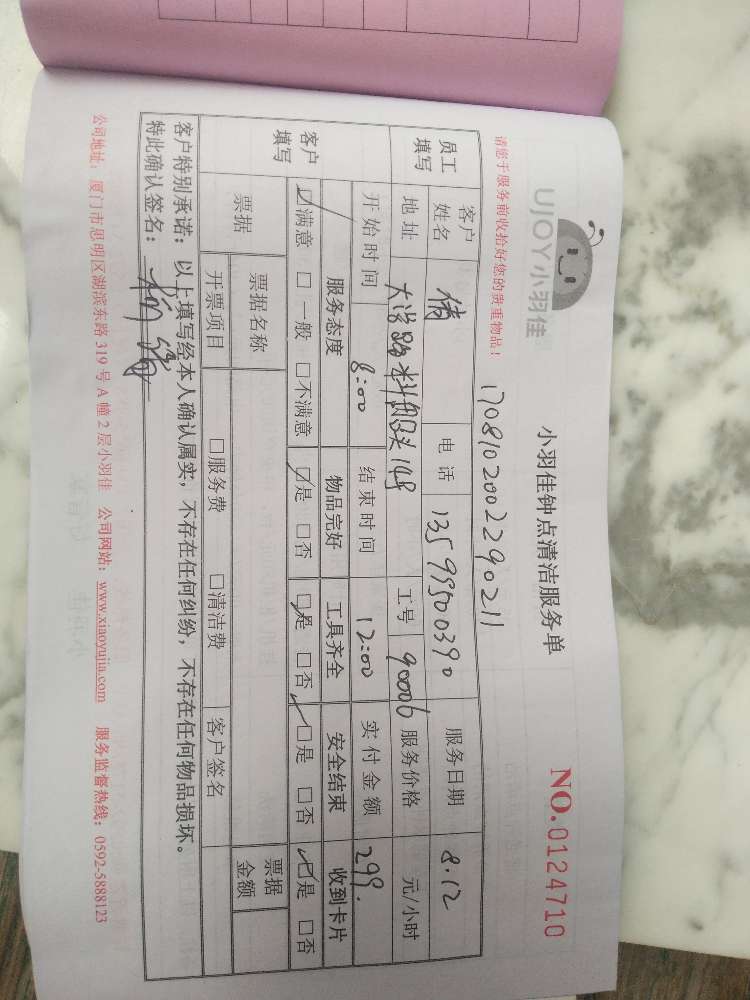 UJOY小羽佳
小羽佳钟点清洁服务单
NO.0124710
请您于服务前收拾好您的贵重物品！
1708102002290211
员工填写
客户姓名 倩 电话 13599500390 服务日期 8.12
地址 14号 工号 90006 服务价格 元/小时
开始时间 8:00 结束时间 12:00 实付金额 299.
客户填写
服务态度 物品完好 工具齐全 安全结束 收到卡片
☑满意 □一般 □不满意 ☑是 □否 ☑是 □否 ☑是 □否 ☑是 □否
票据 票据名称 票据金额
开票项目 □服务费 □清洁费 客户签名
客户特别承诺：以上填写经本人确认属实，不存在任何纠纷，不存在任何物品损坏。
特此确认签名：
公司地址：厦门市思明区湖滨东路319号A幢2层小羽佳 公司网站：www.xiaoyujia.com 服务监督热线：0592-5888123